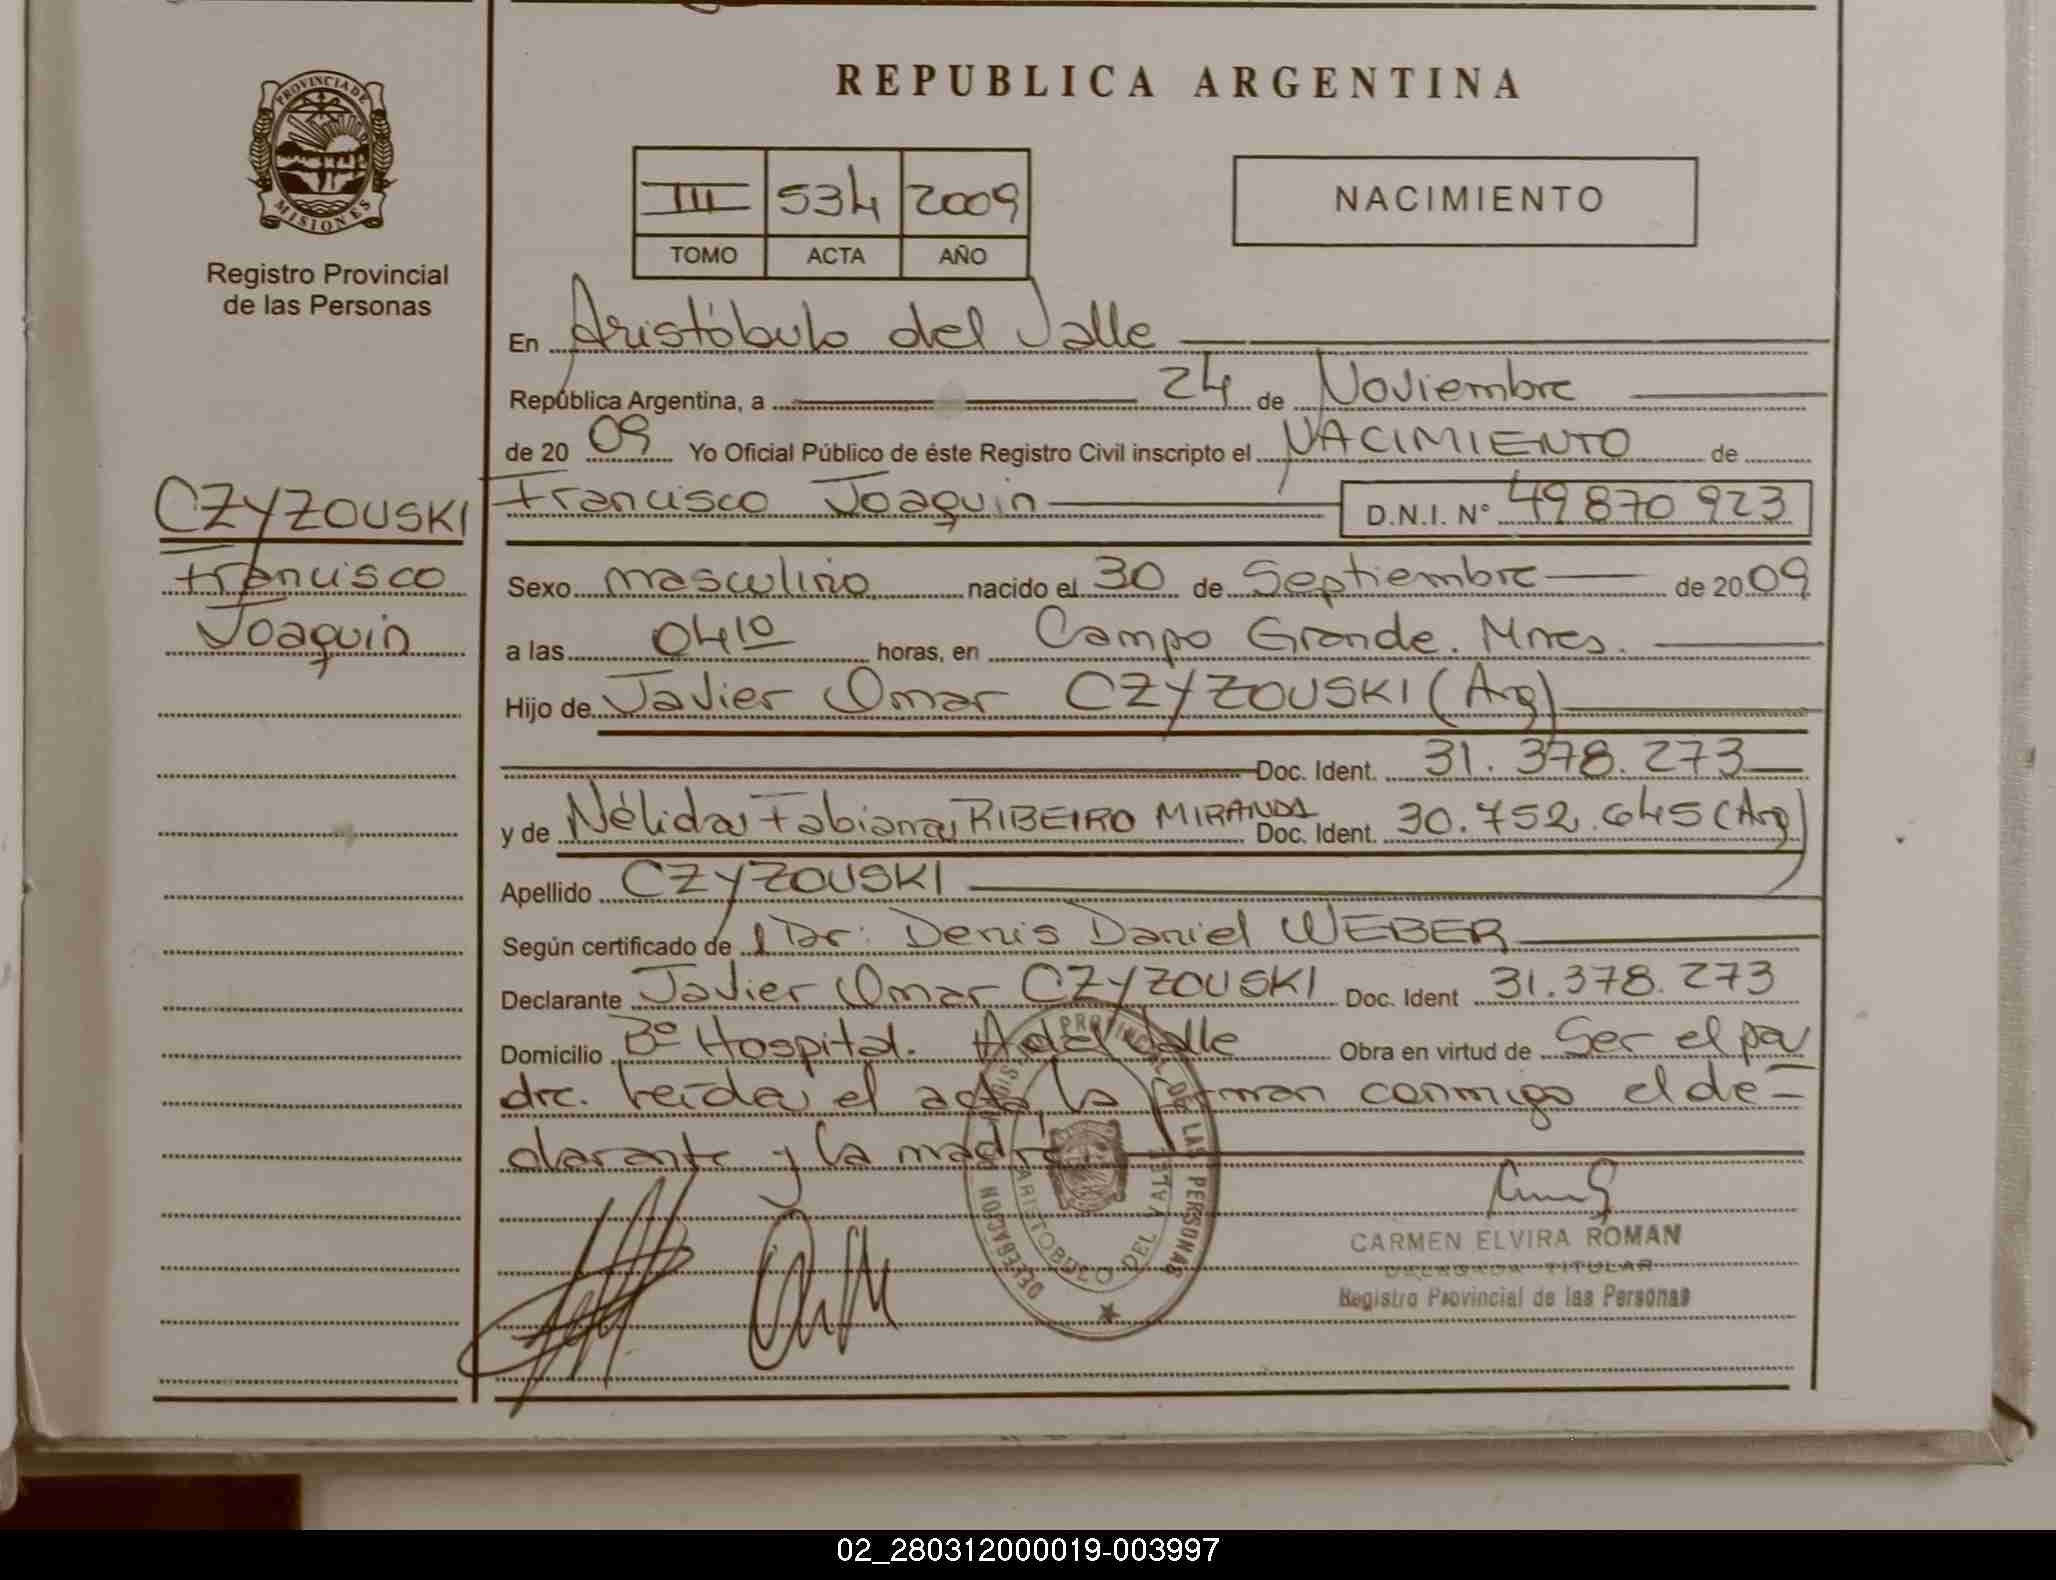 REPUBLICA ARGENTINA
PROVINCIA DE
MISIONES
Registro Provincial
de las Personas
III 534 2009
TOMO ACTA AÑO
NACIMIENTO
En Aristóbulo del Valle
República Argentina, a 24 de Noviembre
de 20 09 Yo Oficial Público de éste Registro Civil inscripto el NACIMIENTO de
CZYZOUSKI
Francisco
Joaquin
Francisco Joaquin D.N.I. N° 49870923
Sexo masculino nacido el 30 de Septiembre de 2009
a las 04 10 horas, en Campo Grande. Mnes.
Hijo de Javier Omar CZYZOUSKI (Arg)
Doc. Ident. 31.378.273
y de Nélida Fabiana RIBEIRO MIRANDA Doc. Ident. 30.752.645 (Arg)
Apellido CZYZOUSKI
Según certificado de l Dr: Denis Daniel WEBER
Declarante Javier Omar CZYZOUSKI Doc. Ident 31.378.273
Domicilio Bº Hospital. A del Valle Obra en virtud de Ser el pa
dre. leída el acta, la firman conmigo el de-
clarante y la madre
PROVINCIAL DE LAS PERSONAS
DELEGACION
ARISTOBULO DEL VALLE
CARMEN ELVIRA ROMAN
DELEGADA TITULAR
Registro Provincial de las Personas
02_280312000019-003997